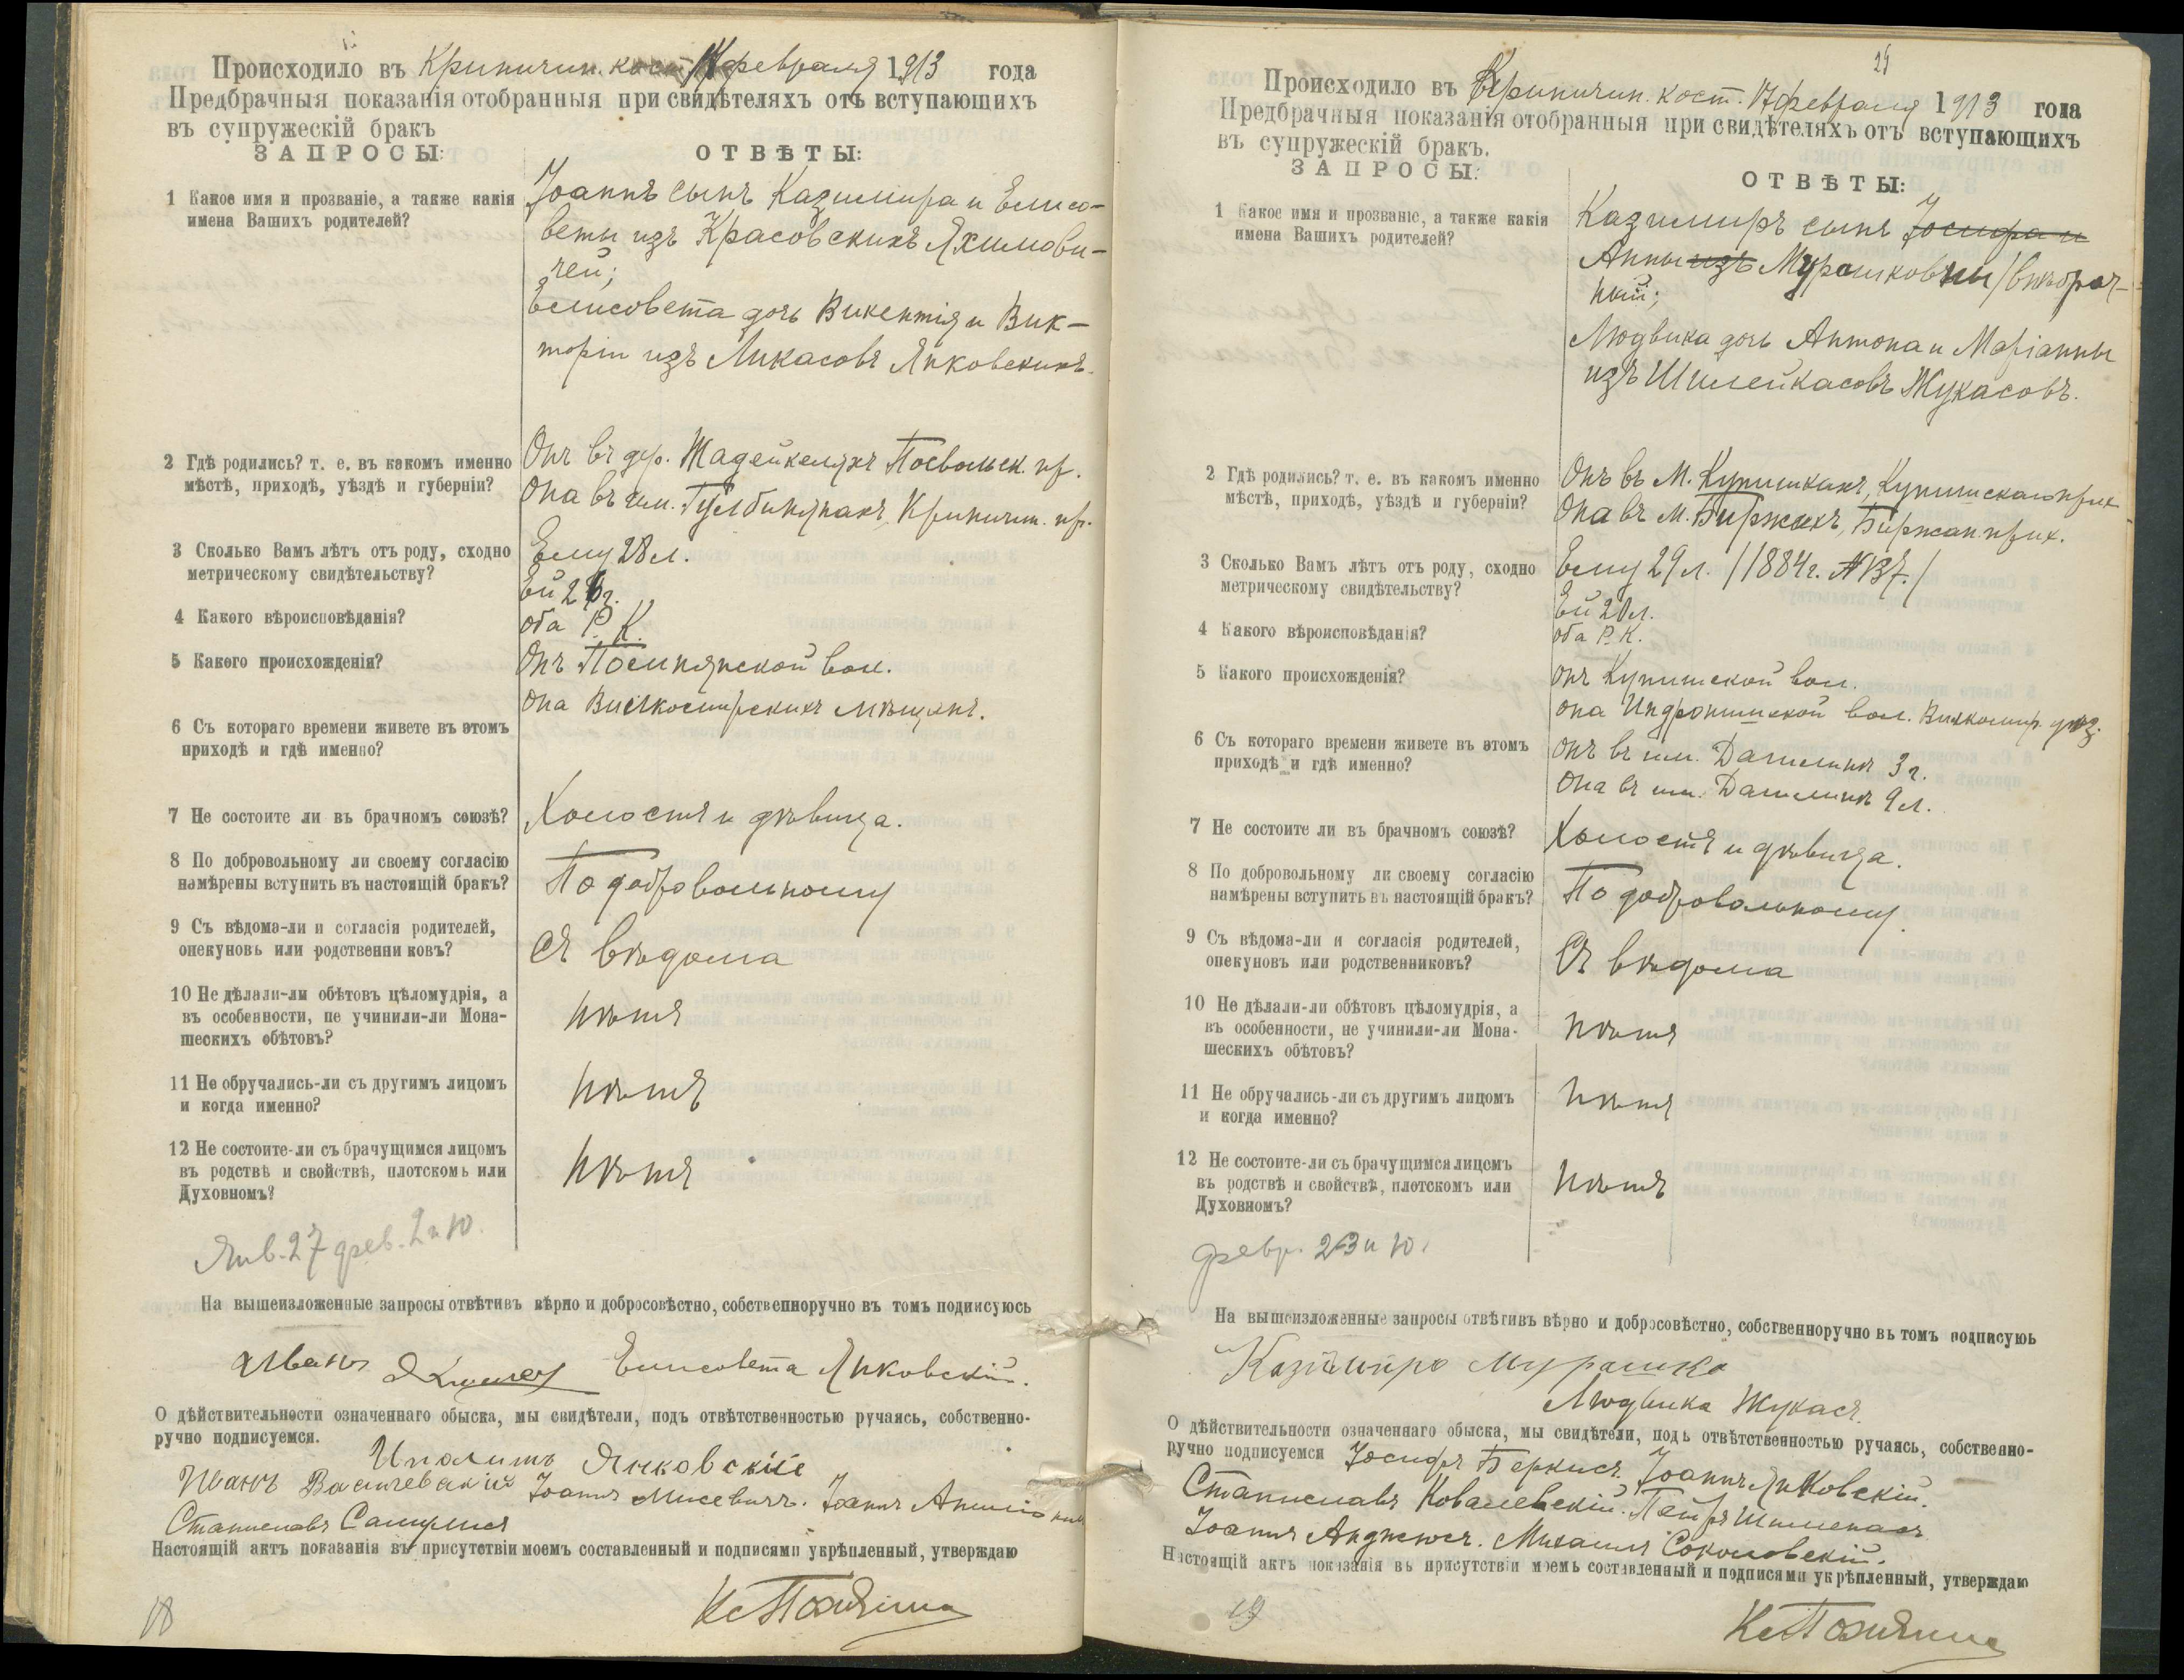 Происходило въ Криничин. кост. февраля 1913 года
Предбрачныя показанія отобранныя при свидѣтеляхъ отъ вступающихъ
въ супружескій бракъ
ЗАПРОСЫ:
ОТВѢТЫ:
1 Какое имя и прозваніе, а также какія
имена Вашихъ родителей?
Іоаннъ сынъ Казимира и Елисо-
веты изъ Красовскихъ Яхимови-
чей;
Елисовета дочь Викентія и Вик-
торіи изъ Микасовъ Янковскихъ.
2 Гдѣ родились? т. е. въ какомъ именно
мѣстѣ, приходѣ, уѣздѣ и губерніи?
Онъ въ дер. Жадейкеляхъ Посвольск. пр.
Она въ им. Гулбинянахъ, Криничин. пр.
3 Сколько Вамъ лѣтъ отъ роду, сходно
метрическому свидѣтельству?
Ему 28 л.
Ей 2 г.
4 Какого вѣроисповѣданія?
оба Р. К.
5 Какого происхожденія?
Онъ Посинянской вол.
Она Вилкомирскихъ мѣщанъ.
6 Съ котораго времени живете въ этомъ
приходѣ и гдѣ именно?
7 Не состоите ли въ брачномъ союзѣ?
Холостъ и дѣвица.
8 По добровольному ли своему согласію
намѣрены вступить въ настоящій бракъ?
По добровольному
9 Съ вѣдома-ли и согласія родителей,
опекуновъ или родственни ковъ?
Съ вѣдома
10 Не дѣлали-ли обѣтовъ цѣломудрія, а
въ особенности, не учинили-ли Мона-
шескихъ обѣтовъ?
Нѣтъ
11 Не обручались-ли съ другимъ лицомъ
и когда именно?
Нѣтъ
12 Не состоите-ли съ брачущимся лицомъ
въ родствѣ и свойствѣ, плотскомъ или
Духовномъ?
Нѣтъ
Янв. 27 фев. 2 и 10.
На вышеизложенные запросы отвѣтивъ вѣрно и добросовѣстно, собственноручно въ томъ подписуюсь
Иванъ Елисовета Янковскій.
О дѣйствительности означеннаго обыска, мы свидѣтели, подъ отвѣтственностью ручаясь, собственно-
ручно подписуемся.
Иполитъ Янковскій
Иванъ Василевскій Іоаннъ Мисевичъ. Іоаннъ
Станиславъ
Настоящій актъ показанія въ присутствіи моемъ составленный и подписями укрѣпленный, утверждаю
18
25
Происходило въ Криничин. кост. 17 февраля 1913 года
Предбрачныя показанія отобранныя при свидѣтеляхъ отъ вступающихъ
въ супружескій бракъ.
ЗАПРОСЫ:
ОТВѢТЫ:
1 Какое имя и прозваніе, а также какія
имена Вашихъ родителей?
Казимиръ сынъ Іосифа и
Анны изъ Мурашковны /внѣбрач-
ный;
Людвика дочь Антона и Маріанны
изъ Шилейкасовъ Жукасовъ.
2 Гдѣ родились? т. е. въ какомъ именно
мѣстѣ, приходѣ, уѣздѣ и губерніи?
Онъ въ М. Купишкахъ, Купишскаго прих
Она въ м. Биржахъ, Биржан. прих.
3 Сколько Вамъ лѣтъ отъ роду, сходно
метрическому свидѣтельству?
Ему 29 л. /1884 г. №137./
Ей 20 л.
4 Какого вѣроисповѣданія?
оба Р. К.
5 Какого происхожденія?
онъ Купишской вол.
она Индронишской вол. Вилкомир. уѣз.
6 Съ котораго времени живете въ этомъ
приходѣ и гдѣ именно?
Онъ въ им. 3 г.
Она въ им. 9 л.
7 Не состоите ли въ брачномъ союзѣ?
Холостъ и дѣвица.
8 По добровольному ли своему согласію
намѣрены вступить въ настоящій бракъ?
По добровольному.
9 Съ вѣдома-ли и согласія родителей,
опекуновъ или родственниковъ?
Съ вѣдома
10 Не дѣлали-ли обѣтовъ цѣломудрія, а
въ особенности, не учинили-ли Мона-
шескихъ обѣтовъ?
Нѣтъ
11 Не обручались-ли съ другимъ лицомъ
и когда именно?
Нѣтъ
12 Не состоите-ли съ брачущимся лицомъ
въ родствѣ и свойствѣ, плотскомъ или
Духовномъ?
Нѣтъ
февр. 2 3 и 10.
На вышеизложенные запросы отвѣтивъ вѣрно и добросовѣстно, собственноручно въ томъ подписуюь
Казимиръ Мурашко
Людвика Жукасъ.
О дѣйствительности означеннаго обыска, мы свидѣтели, подъ отвѣтственностью ручаясь, собственно-
ручно подписуемся Іосифъ Беркисъ. Іоаннъ Янковскій.
Станиславъ Ковалевскій. Петръ
Іоаннъ Анджюсъ. Михаилъ Соколовскій.
Настоящій актъ показанія въ присутствіи моемъ составленный и подписями укрѣпленный, утверждаю
19